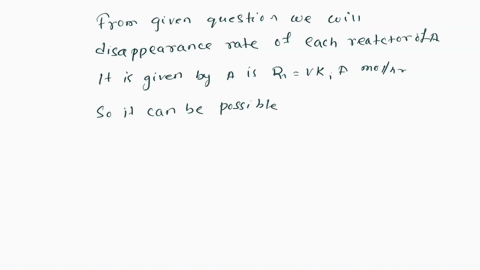 From given question we will
disappearance rate of each reatctor of A
It is given by A is Rn = VK, A mol/hr
So it can be possible